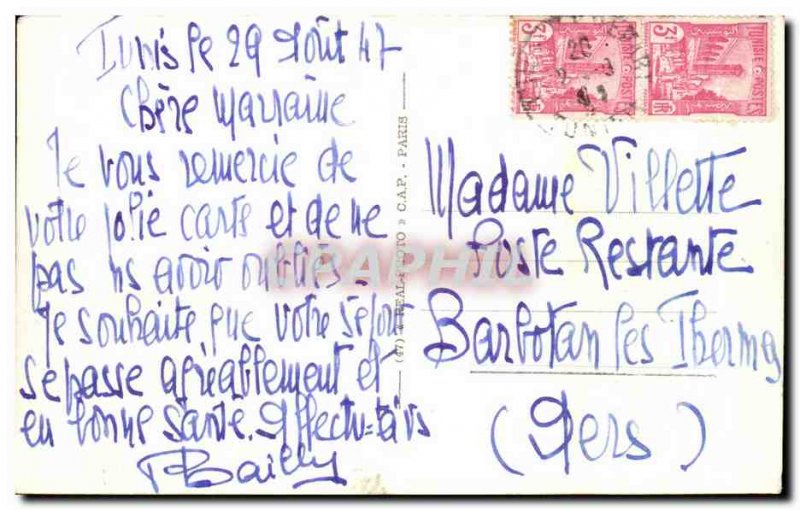 Tunis le 29 Août 47
Chère Marraine
Je vous remercie de
votre jolie carte et de ne
pas ns avoir oubliés.
Je souhaite que votre séjour
se passe agréablement et
en bonne santé. Affectu=
Bailly
(47) « REAL-PHOTO » C.A.P. - PARIS
Madame Villette
Poste Restante
Barbotan les Thermes
(Gers)
3F
TUNISIE POSTES
3F
TUNISIE POSTES